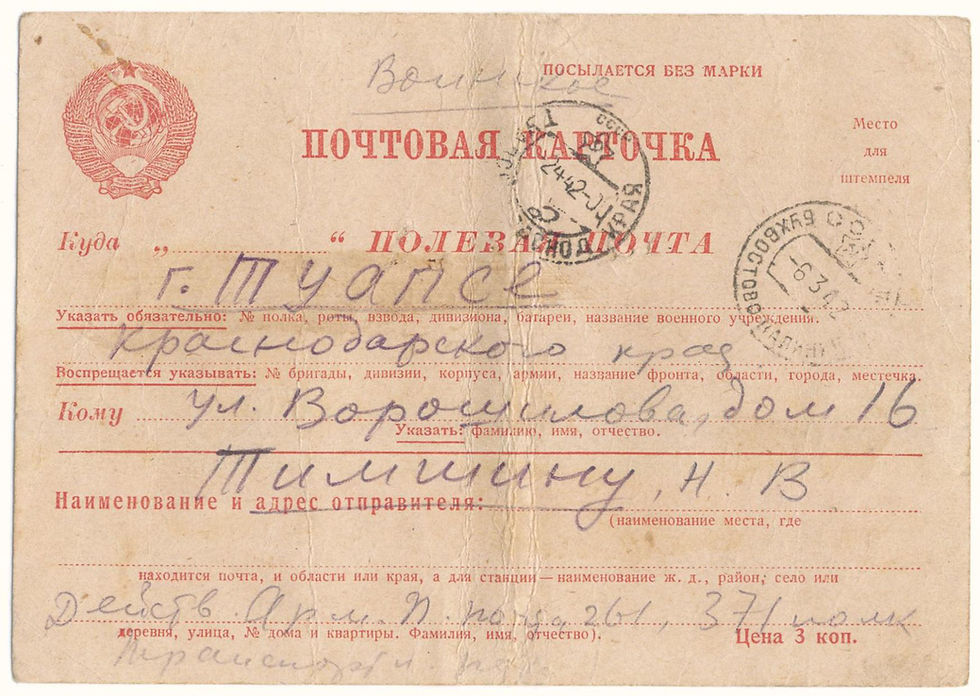 Воинское
ПОСЫЛАЕТСЯ БЕЗ МАРКИ
ПОЧТОВАЯ КАРТОЧКА
Место
для
штемпеля
Куда „ “ ПОЛЕВАЯ ПОЧТА
г. Туапсе
Указать обязательно: № полка, роты, взвода, дивизиона, батареи, название военного учреждения.
Краснодарского края
Воспрещается указывать: № бригады, дивизии, корпуса, армии, название фронта, области, города, местечка.
Кому ул. Ворошилова, дом 16
Указать: фамилию, имя, отчество.
Тимшину, Н. В
Наименование и адрес отправителя:
(наименование места, где
находится почта, и области или края, а для станции — наименование ж. д., район, село или
Действ. Арм. П. почта 261, 371 полк
деревня, улица, № дома и квартиры. Фамилия, имя, отчество).
Цена 3 коп.